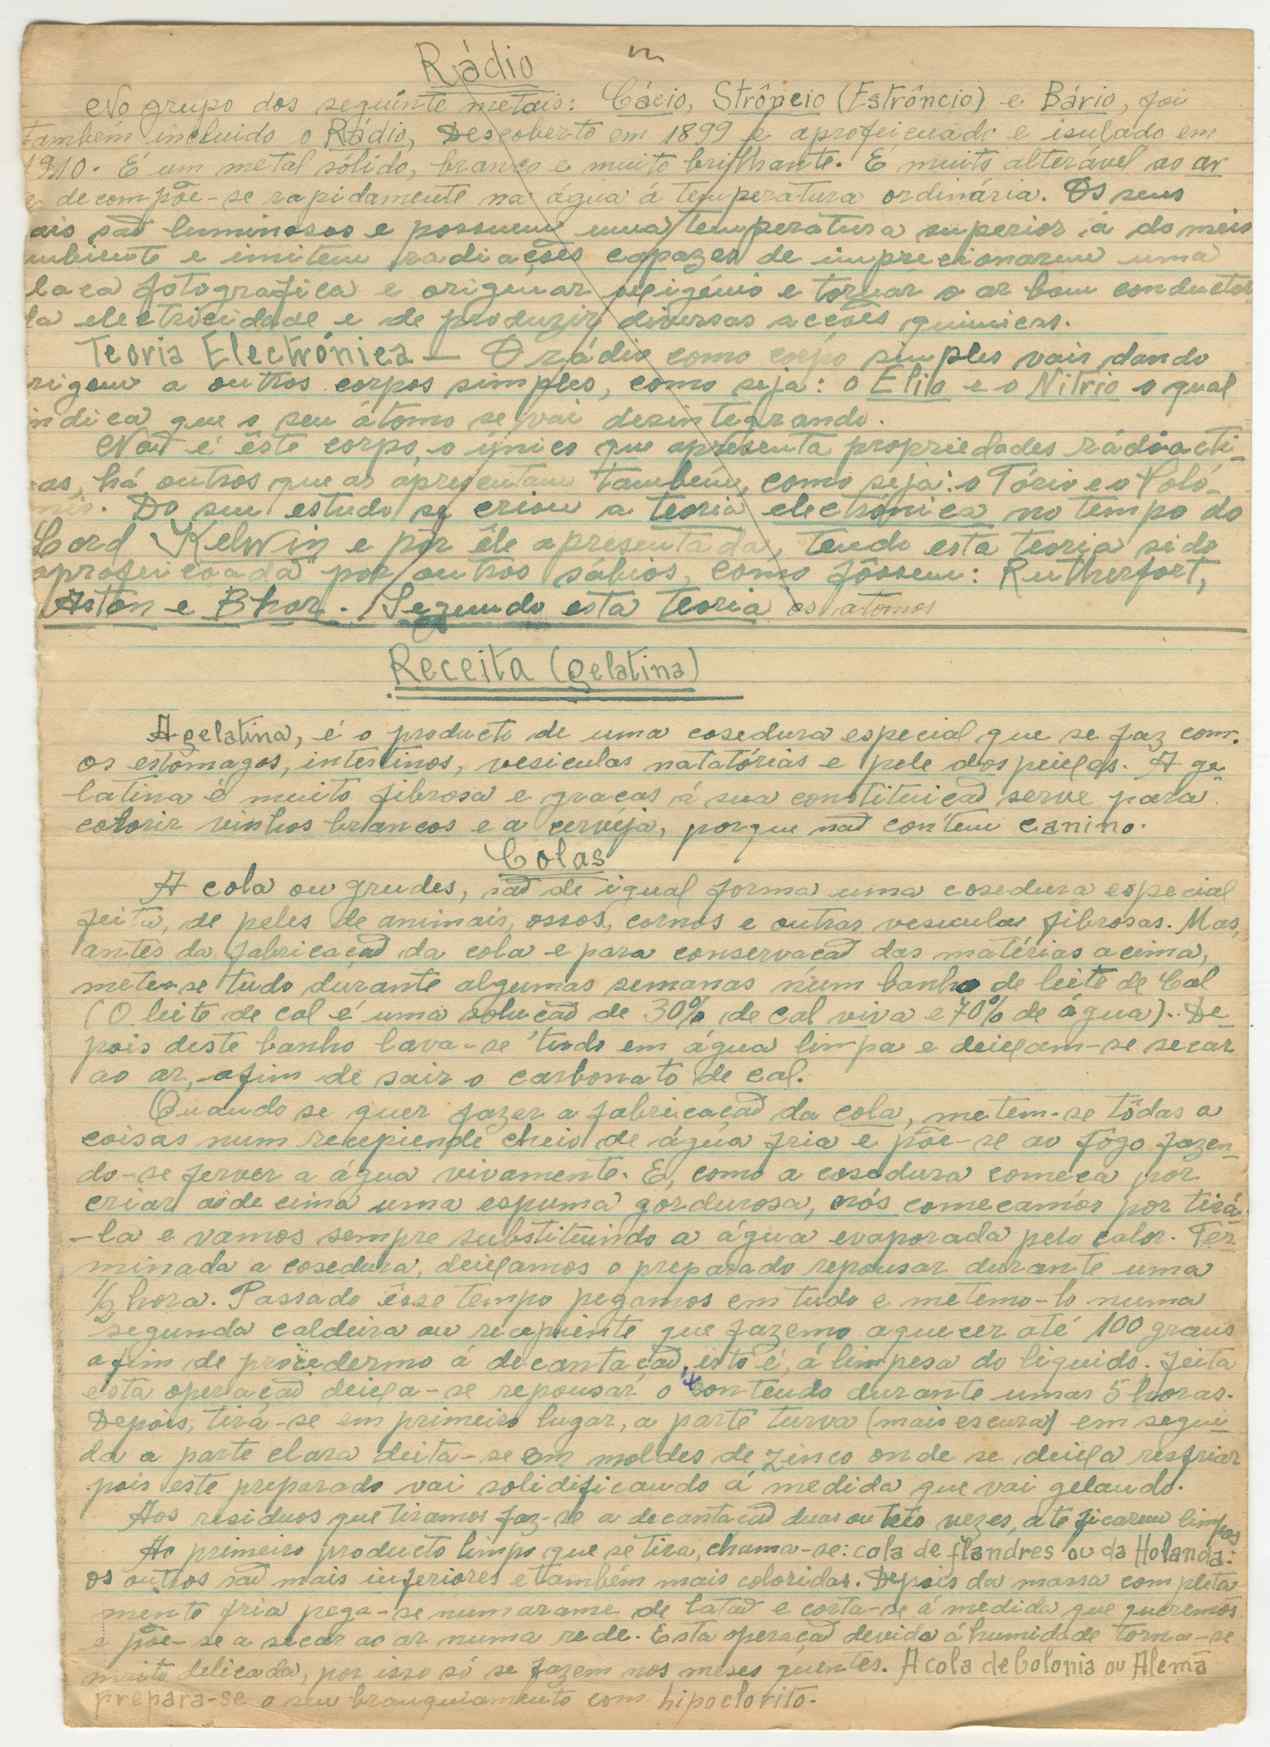 Rádio
No grupo dos seguinte metais: Cácio, Strôncio (Estrôncio) e Bário, foi
tambem incluido o Rádio, Descoberto em 1899 e aprofeicuado e isulado em
1910. É um metal sólido, branco e muito brilhante. É muito alterável ao ar
e decompõe-se rapidamente na água á temperatura ordinária. Os seus
ais são luminosos e possuem uma temperatura superior á do meio
mbiente e imitem radiações capazes de imprecionarem uma
laca fotografica e originar oxigénio e tornar o ar bom conductor
da electricidade e de produzir diversas acções quimicas.
Teoria Electrónica — O rádio como corpo simples vais dando
rigem a outros corpos simples, como seja: o Elio e o Nitrio o qual
indica que o seu átomo se vai dezintegrando.
Não é êste corpo, o único que apresenta propriedades rádioacti-
as, há outros que as aprejentam tambem, como seja: o Tório e o Poló-
nio. Do seu estudo se criou a teoria electrónica no tempo do
Lord Kelwin e pôr êle apresentada, tendo esta teoria sido
aprofeicoada por outros sábios, como fôssem: Rutherfort,
Aston e Bhor. Segundo esta teoria os atomos
Receita (gelatina)
A gelatina, é o producto de uma cosedura especial que se faz com.
os estômagos, intestinos, vesiculas natatórias e pele dos peixes. A ge-
latina é muito fibrosa e gracas á sua constituicão serve para
colorir vinhos brancos e a cerveja, porque não contem canino.
Colas
A cola ou grudes, são de igual forma uma cosedura especial
feita, de peles de animais, ossos, cornos e outras vesicula fibrosas. Mas,
antes da fabricação da cola e para conservacão das matérias acima,
mete-se tudo durante algumas semanas num banho de leite de Cal
(O leite de cal é uma solucão de 30% de cal viva e 70% de água). De-
pois deste banho lava-se tudo em água limpa e deixam-se secar
ao ar, afim de sair o carbonato de cal.
Quando se quer fazer a fabricacão da cola, metem-se tôdas a
coisas num recepiende cheio de água fria e põe-se ao fôgo fazen-
do-se ferver a água vivamente. E, como a cosedura começa por
criar ao de cima uma espuma gordurosa, nós comecamos por tirá-
-la e vamos sempre substituindo a água evaporada pelo calor. Ter-
minada a cosedura, deixamos o preparado repousar durante uma
1/2 hora. Passado êsse tempo pegamos em tudo e metemo-lo numa
segunda caldeira ou recepiente que fazemo aquecer até 100 graus
afim de procedermo á decantacão, isto é, á limpesa do liquido. Feita
esta operacão deixa-se repousar o contendo durante umas 5 horas.
Depois, tirá-se em primeiro lugar, a parte turva (mais escura) em segui-
da a parte clara deita-se em moldes de zinco onde se deixa resfriar
pois este preparado vai solidificando á medida que vai gelando.
Aos residuos que tiramos faz-se a decantacão duas ou três vezes, até ficarem limpos
Ao primeiro producto limpo que se tira, chama-se: cola de flandres ou da Holanda:
os outros são mais inferiores e também mais coloridas. Depois da massa completa
mente fria pega-se num arame de latão e corta-se á medida que queremos
e põe-se a secar ao ar numa rede. Esta operacão devida á humidade torna-se
muito delicada, por isso só se fazem nos meses quentes. A cola de Colonia ou Alemã
prepara-se o seu branqueamento com hipoclorito.